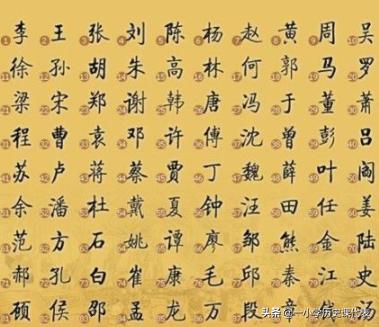 李 王 张 刘 陈 杨 赵 黄 周 吴
徐 孙 胡 朱 高 林 何 郭 马 罗
梁 宋 郑 谢 韩 唐 冯 于 董 萧
程 曹 袁 邓 许 傅 沈 曾 彭 吕
苏 卢 蒋 蔡 贾 丁 魏 薛 叶 阎
余 潘 杜 戴 夏 钟 汪 田 任 姜
范 方 石 姚 谭 廖 邹 熊 金 陆
郝 孔 白 崔 康 毛 邱 秦 江 史
顾 侯 邵 孟 龙 万 段
头条 @一小学历史课代表